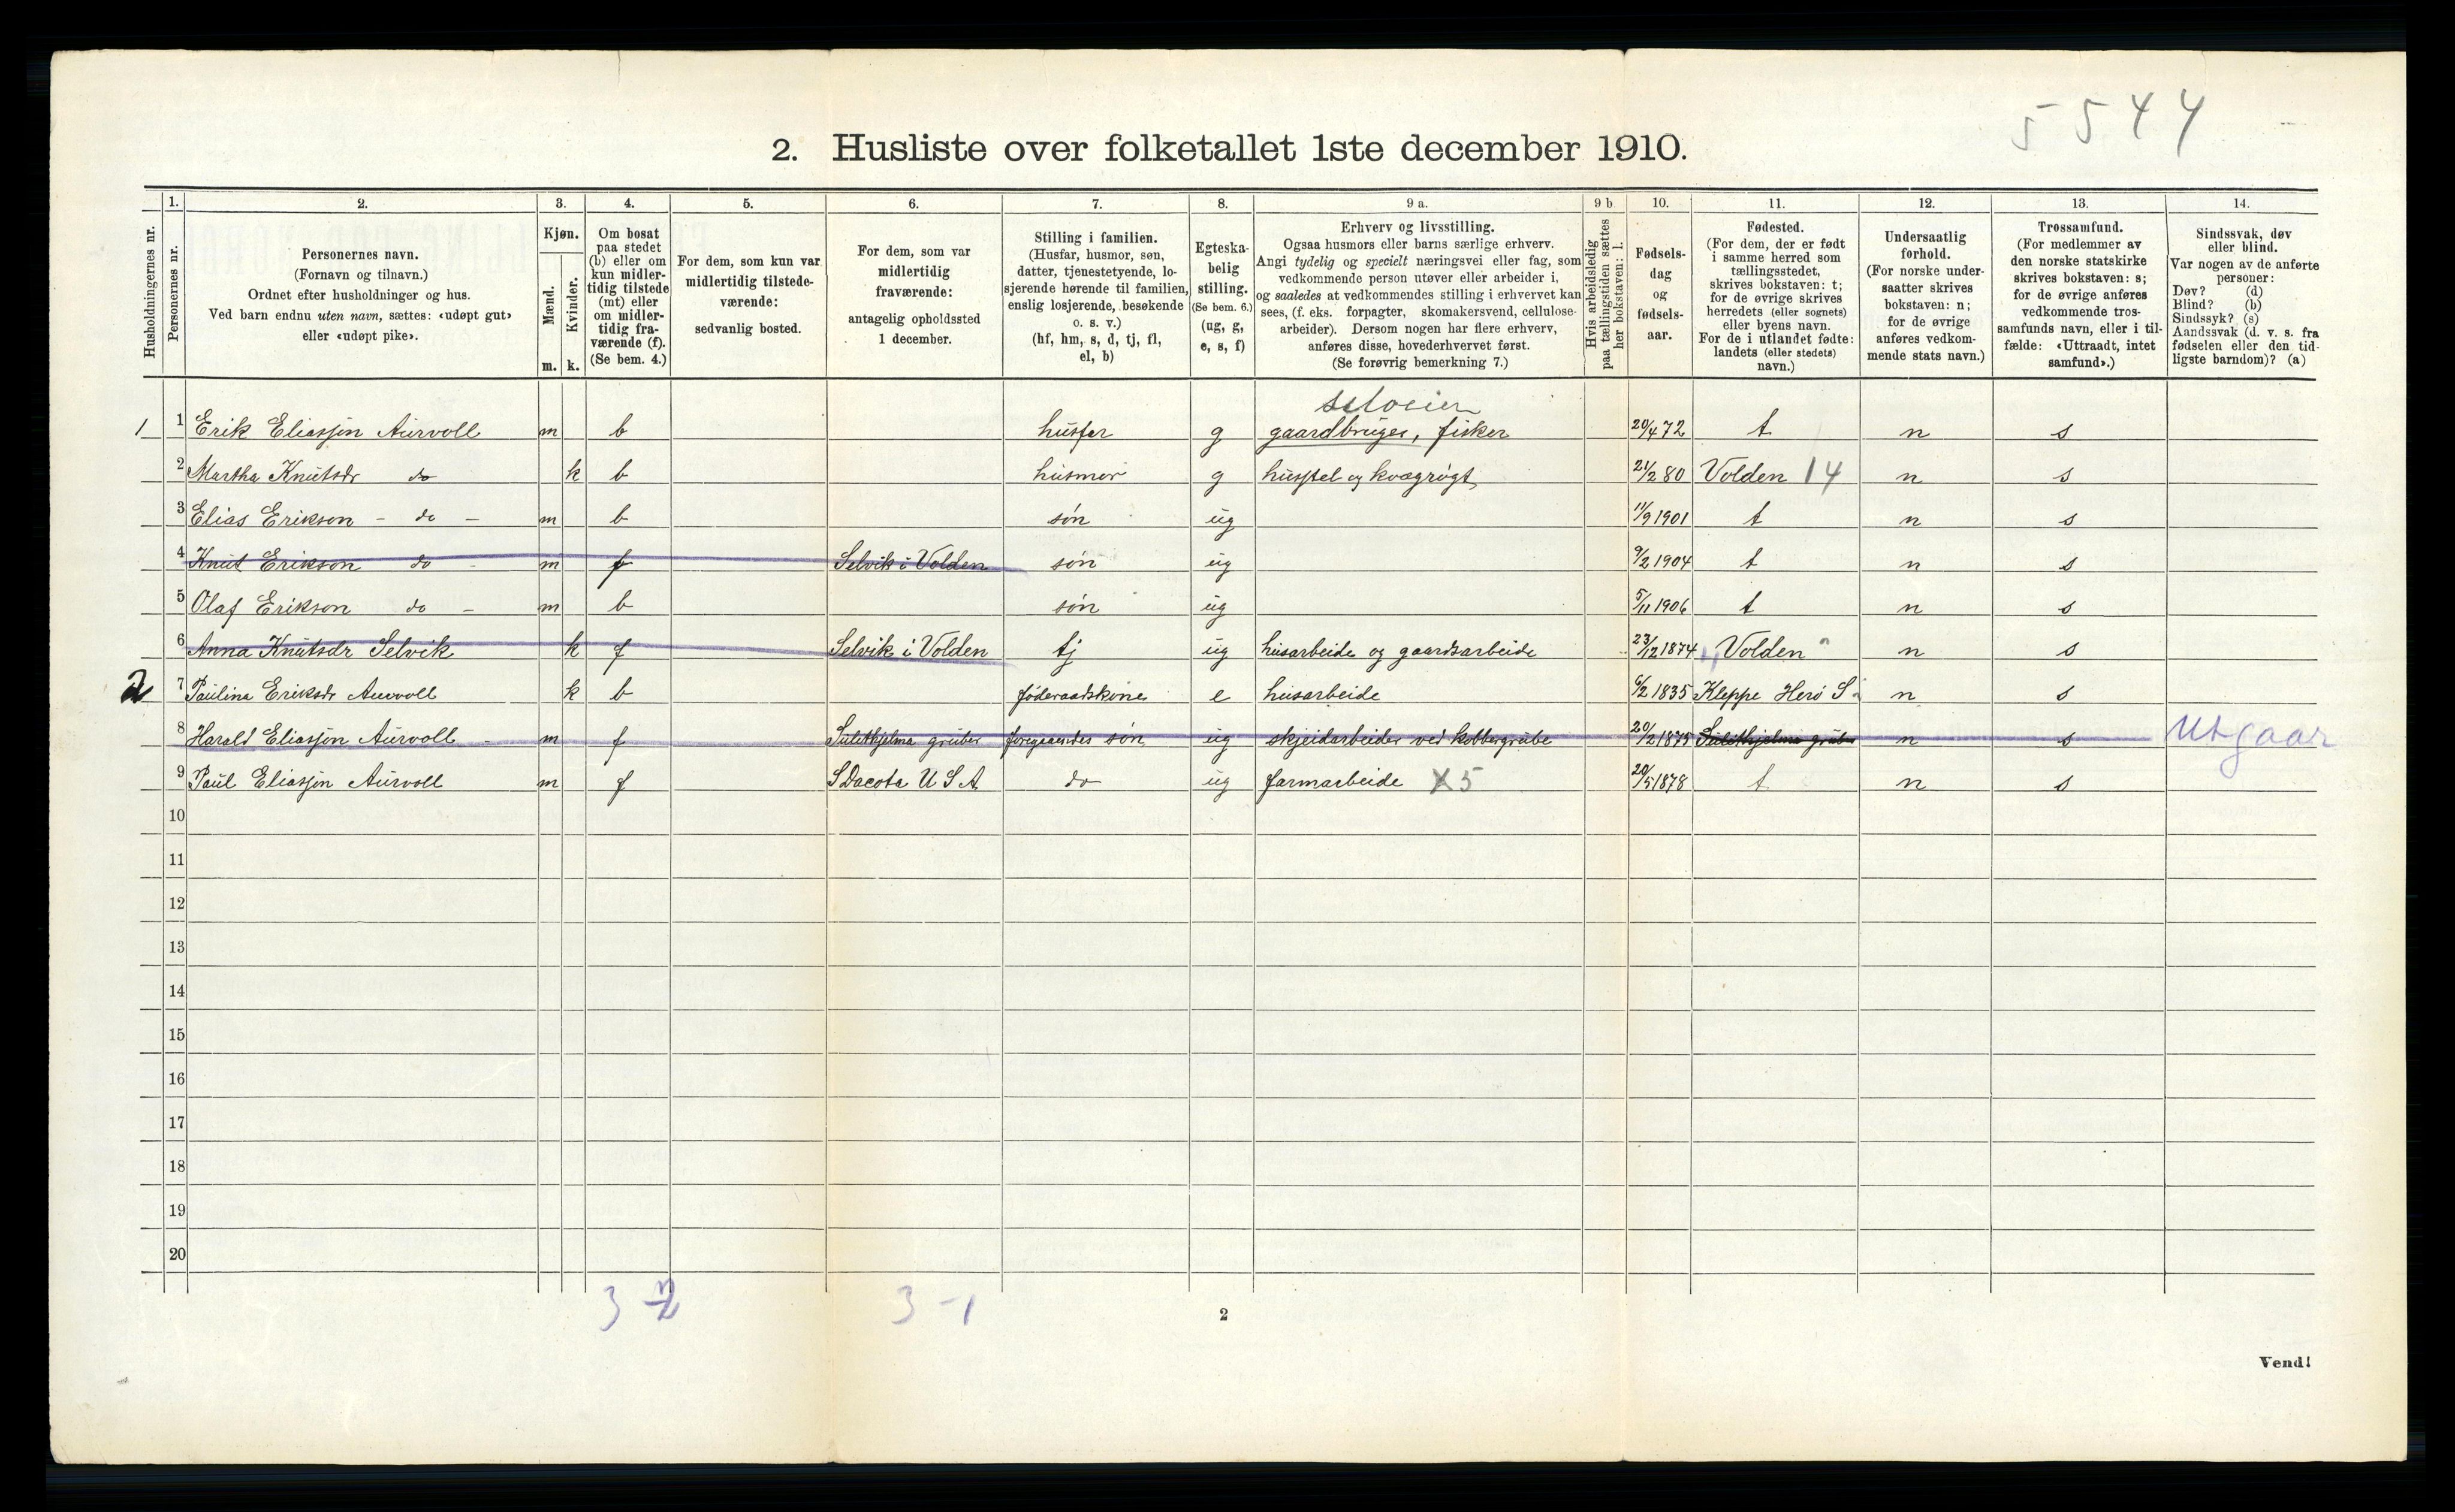 5544
2. Husliste over folketallet 1ste december 1910.
Husholdningernes nr.
1.
Personernes nr.
2.
Personernes navn.
(Fornavn og tilnavn.)
Ordnet efter husholdninger og hus.
Ved barn endnu uten navn, sættes: «udøpt gut»
eller «udøpt pike».
3.
Kjøn.
Mænd.
Kvinder.
m. k.
4.
Om bosat
paa stedet
(b) eller om
kun midler-
tidig tilstede
(mt) eller
om midler-
tidig fra-
værende (f).
(Se bem. 4.)
5.
For dem, som kun var
midlertidig tilstede-
værende:
sedvanlig bosted.
6.
For dem, som var
midlertidig
fraværende:
antagelig opholdssted
1 december.
7.
Stilling i familien.
(Husfar, husmor, søn,
datter, tjenestetyende, lo-
sjerende hørende til familien,
enslig losjerende, besøkende
o. s. v.)
(hf, hm, s, d, tj, fl,
el, b)
8.
Egteska-
belig
stilling.
(Se bem. 6.)
(ug, g,
e, s, f)
9 a.
Erhverv og livsstilling.
Ogsaa husmors eller barns særlige erhverv.
Angi tydelig og specielt næringsvei eller fag, som
vedkommende person utøver eller arbeider i,
og saaledes at vedkommendes stilling i erhvervet kan
sees, (f. eks. forpagter, skomakersvend, cellulose-
arbeider). Dersom nogen har flere erhverv,
anføres disse, hovederhvervet først.
(Se forøvrig bemerkning 7.)
9 b
Hvis arbeidsledig
paa tællingstiden sættes
her bokstaven: l.
10.
Fødsels-
dag
og
fødsels-
aar.
11.
Fødested.
(For dem, der er født
i samme herred som
tællingsstedet,
skrives bokstaven: t;
for de øvrige skrives
herredets (eller sognets)
eller byens navn.
For de i utlandet fødte:
landets (eller stedets)
navn.)
12.
Undersaatlig
forhold.
(For norske under-
saatter skrives
bokstaven: n;
for de øvrige
anføres vedkom-
mende stats navn.)
13.
Trossamfund.
(For medlemmer av
den norske statskirke
skrives bokstaven: s;
for de øvrige anføres
vedkommende tros-
samfunds navn, eller i til-
fælde: «Uttraadt, intet
samfund».)
14.
Sindssvak, døv
eller blind.
Var nogen av de anførte
personer:
Døv? (d)
Blind? (b)
Sindssyk? (s)
Aandssvak (d. v. s. fra
fødselen eller den tid-
ligste barndom)? (a)
seloeier
1 1 Erik Eliasjøn Aurvoll m b husfar g gaardbruger, fisker 20/4 72 t n s
2 Martha Knutsdr do k b husmor g husstel og kvægrøgt 21/2 80 Volden 14 n s
3 Elias Erikson - do - m b søn ug 11/9 1901 t n s
4 Knut Erikson do - m f Selvik i Volden søn ug 9/2 1904 t n s
5 Olaf Erikson do - m b søn ug 5/11 1906 t n s
6 Anna Knutsdr Selvik k f Selvik i Volden tj ug husarbeide og gaardsarbeide 23/12 1874 Volden n s
2 7 Paulina Eriksdr Aurvoll k b føderaadskone e husarbeide 6/2 1835 Kleppe Herø S n s
8 Harald Eliasjøn Aurvoll - m f Sulithjelma gruber foregaaendes søn ug skjeidarbeider ved kobbergrube 20/2 1875 Sulithjelma grube n s Utgaar
9 Paul Eliasjøn Aurvoll m f S Dacota U S A do ug farmarbeide X5 20/5 1878 t n s
10
11
12
13
14
15
16
17
18
19
20
3 3 - 1
2
Vend!